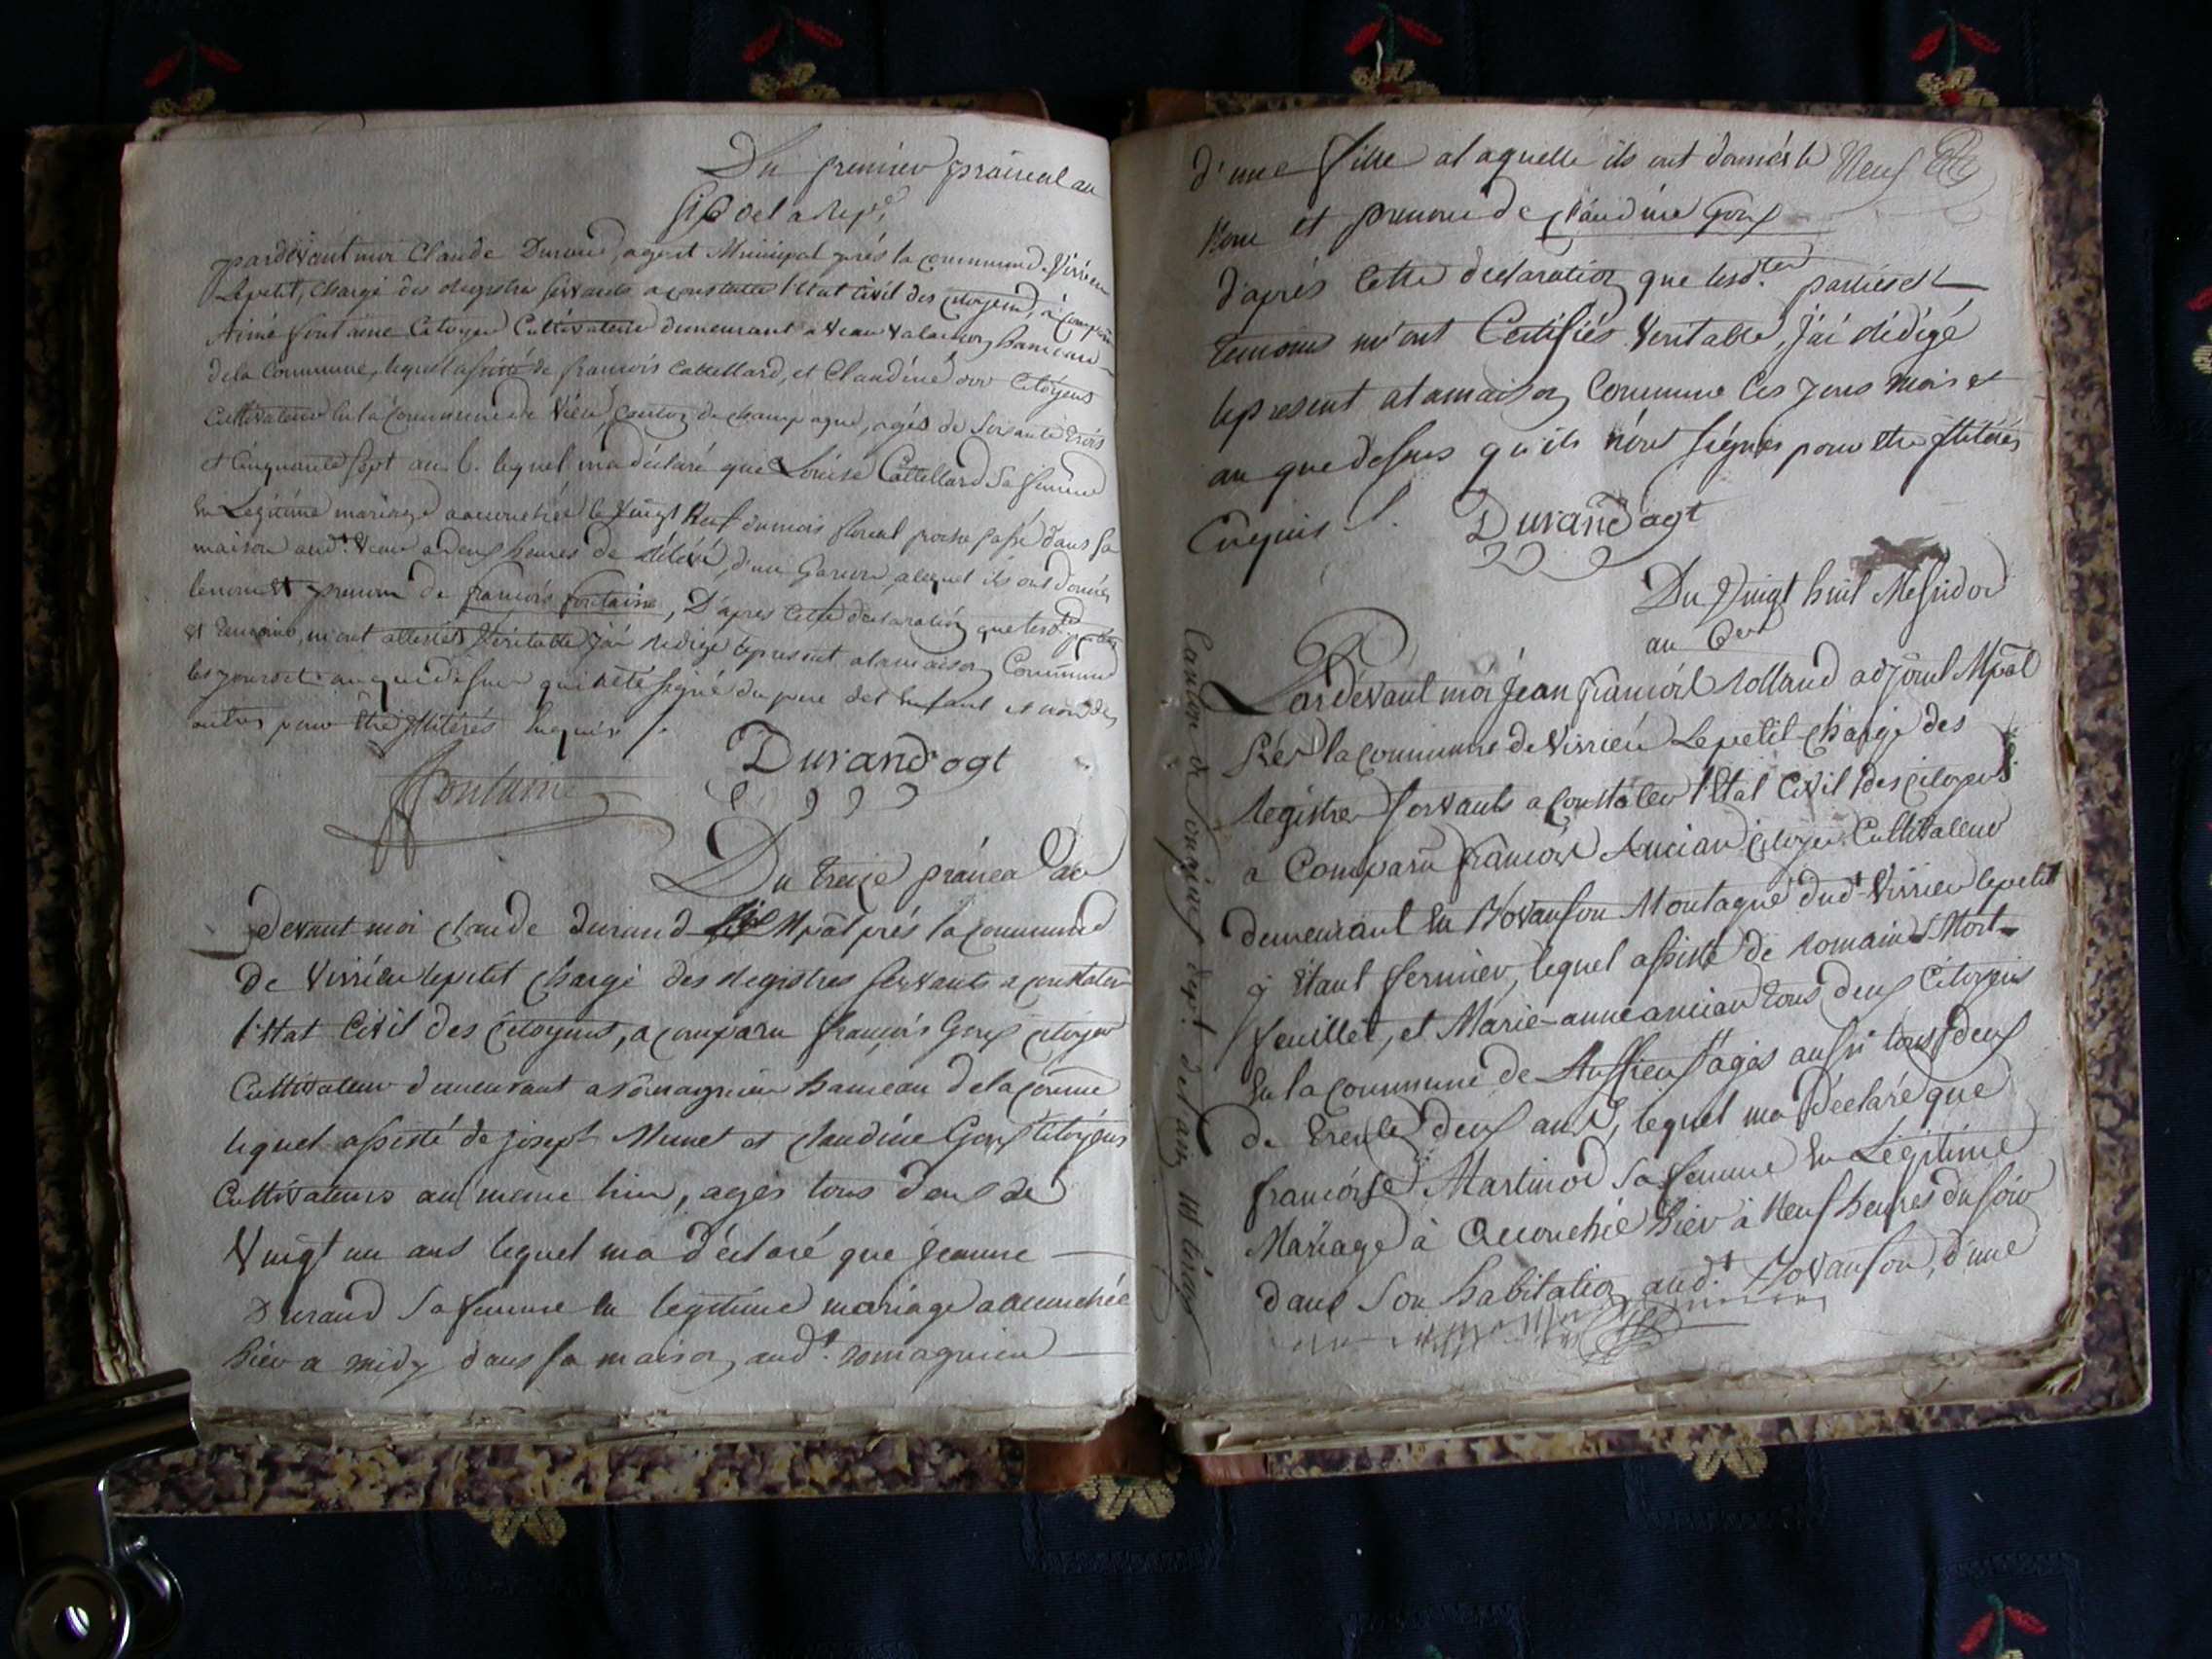 Du premier prairial an
Six de la Repe,
pardevant moi Claude Durand, agent Municipal près la commune de Virrieu
Lepetit, chargé des Registres servants a constater l'Etat Civil des citoyens, a comparu
Aimé fontaine Citoyen Cultivateur demeurant a Veau Valachon, hameau
dela Commune, lequel assisté de francois Cattellard, et Claudine Citoyens
Cultivateurs En la Commune de Vieu, Canton de champagne, agés de Soixante trois
et Cinquante Sept ans. lequel ma déclaré que Louise Cattellard Sa femme
En Légitime mariage a accouchée le Vingt Neuf du mois floreal proche passé dans sa
maison aud.t Veau a deux heures de relévé, d'un Garcon, alequel ils ont donnés
lenom et prenom de francois fontaine, D'apres Cette déclaration que lesd.
et temoins, m'ont attestés Véritable J'ai redigé lepresent alamaison Commune
les jours et an que déssus qui a été Signé du pere del Enfant et non des
autres pour être Illiterés Enquis /.
fontaine
Durand agt
Du treize prairéal
devant moi claude durand Mpal près la commune
de Virriéu lepetit chargé des Registres servants a constater
l'Etat Civil des Citoyens, a comparu francois Goux citoyen
Cultivateur demeurant a romagnieu hameau dela comme
lequel assisté de joseph Munet et claudine Goux Citoyens
Cultivateurs au meme lieu, agés tous deux de
Vingt un ans lequel ma déclaré que jeanne
Durand Sa femme En legitime mariage a accouchée
hier a midy dans sa maison, aud.t romagnieu
d'une fille alaquelle ils ont donnés le Neuf
Nom et prenom de claudine Goux
d'après Cette déclaration que lesd.tes parties et
temoins m'ont Certifiés Veritable, j'ai rédigé
lepresent alamaison Commune les jours mois et
an que dessus qu'ils n'ont signés pour etre Illiterés
Enquis /. Durand agt
Du Vingt huit Messidor
an 6er
Pardevant moi Jean francois Rolland adjoint Mpal
Près la commune de Virrieu Lepetit chargé des
Registres servants a Constater l'Etat Civil des citoyens
a Comparu francois Ancian citoyen Cultivateur
demeurant En Hovanson Montagne dud.t Virrieu lepetit
y Etant fermier, lequel assisté de romain Mort-
feuillet, et Marie-anne ancian tous deux Citoyens
En la commune de agés aussi tous deux
de trente deux ans, lequel ma Déclaré que
francoise Martinod Sa femme En Légitime
Mariage à accouchée hier à Neuf heures du soir
dans Son habitation aud.t Hovanson, d'une
Canton de Songieu dept. del'ain